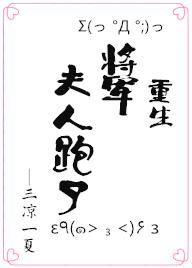 Σ(っ °Д °;)っ
重生
將軍
夫人跑了
——三凉一夏
ε٩(๑> ₃ <)۶ з